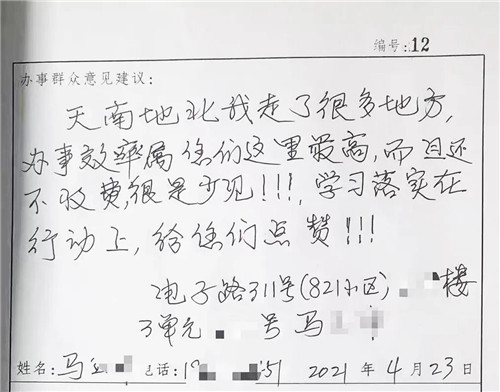 编号:12
办事群众意见建议:
天南地北我走了很多地方,
办事效率属您们这里最高,而且还
不收费,很是少见!!!,学习落实在
行动上,给您们点赞!!!
电子路311号(821小区) 楼
3单元 号马
姓名:马 电话:1 51 2021年4月23日